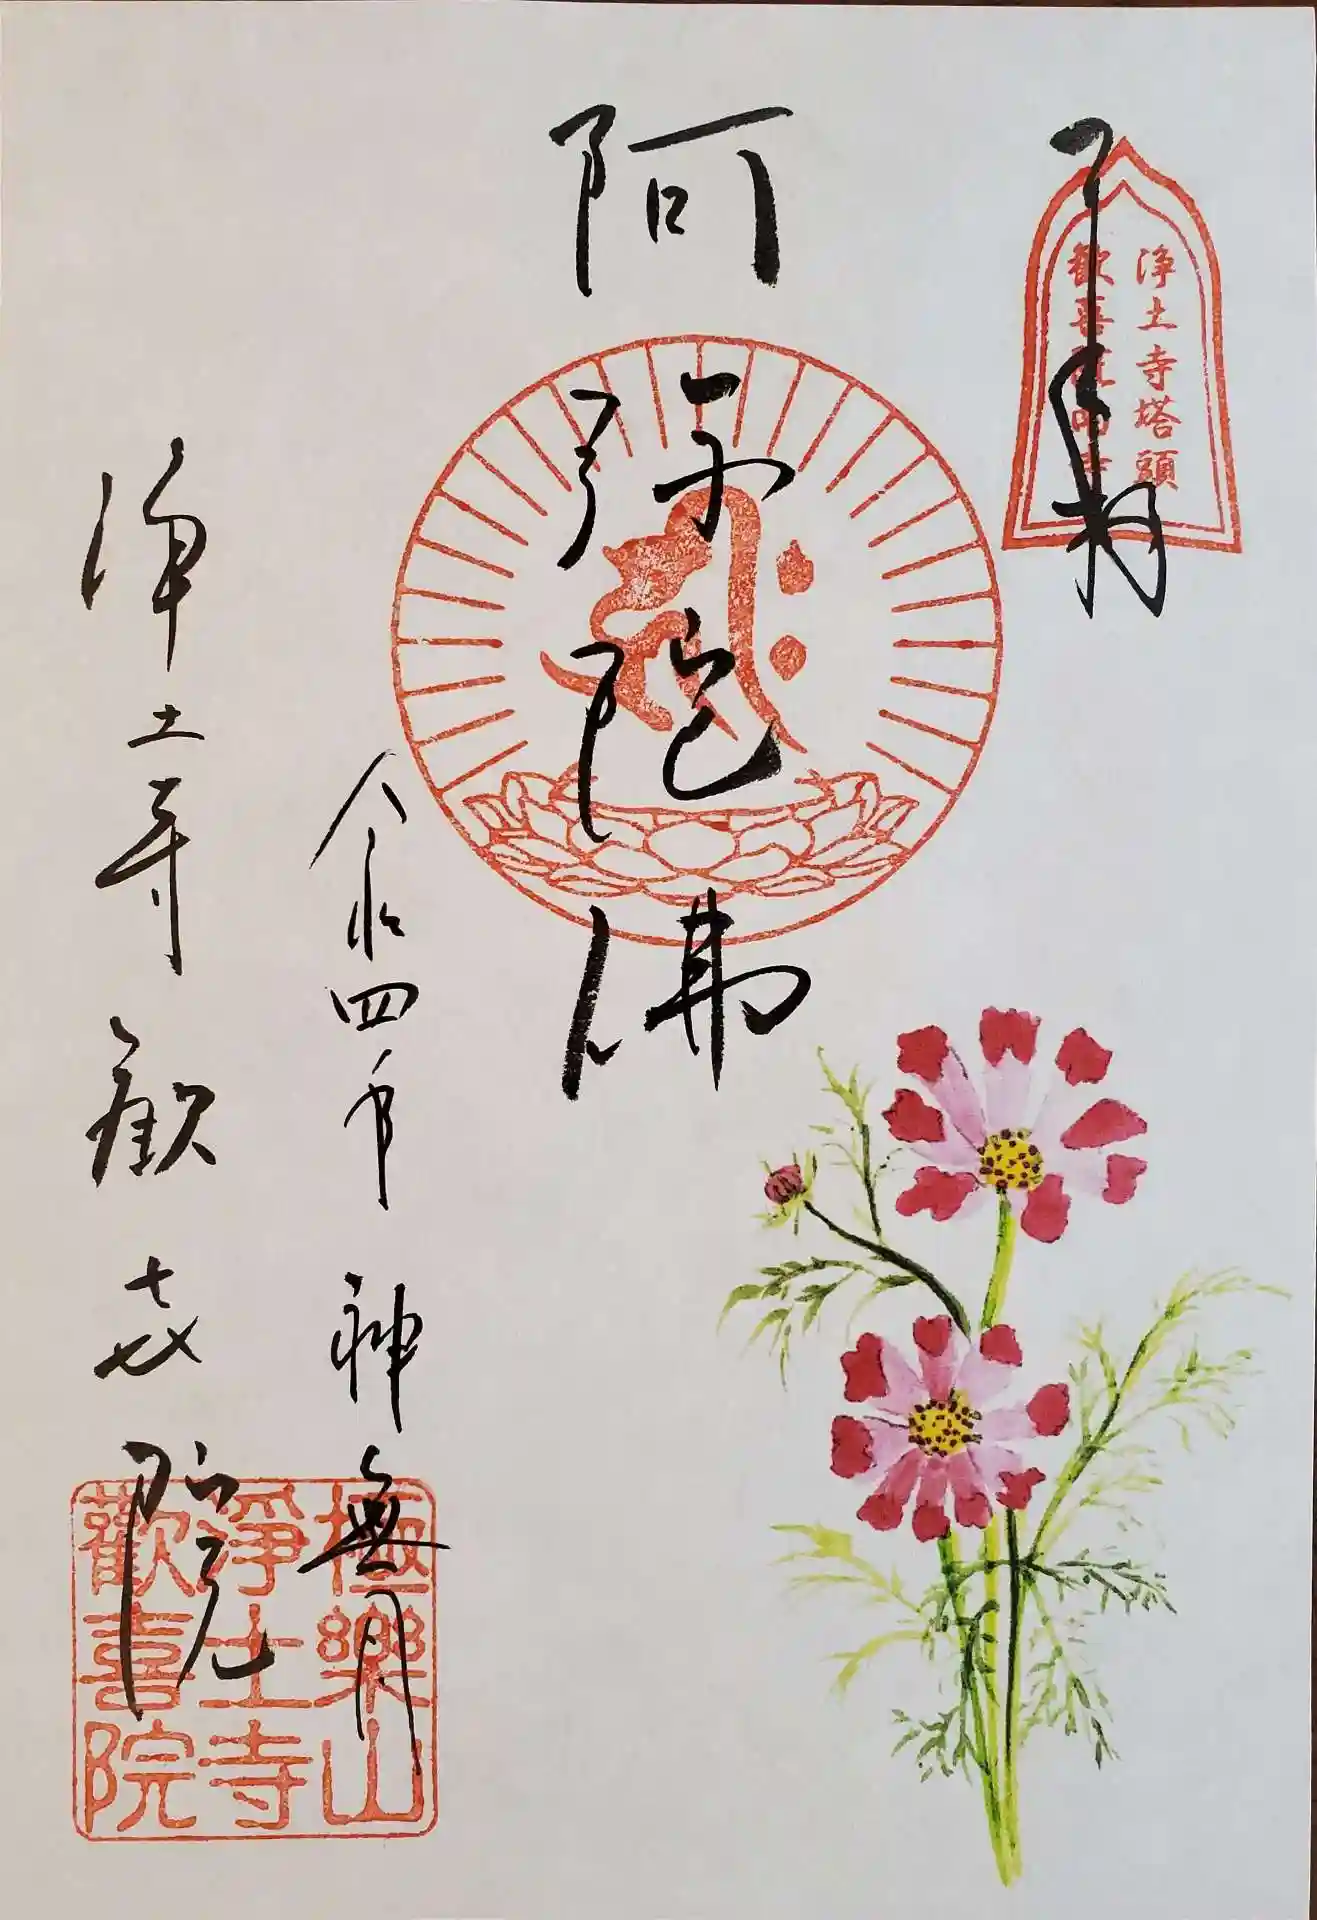 奉拝
浄土寺塔頭
歓喜院
阿弥陀佛
令和四年 神無月
浄土寺 歓喜院
極樂山
淨土寺
歡喜院